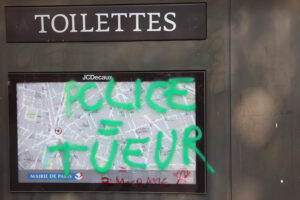 TOILETTES
JCDecaux
POLICE
=
TUEUR
MAIRIE DE PARIS